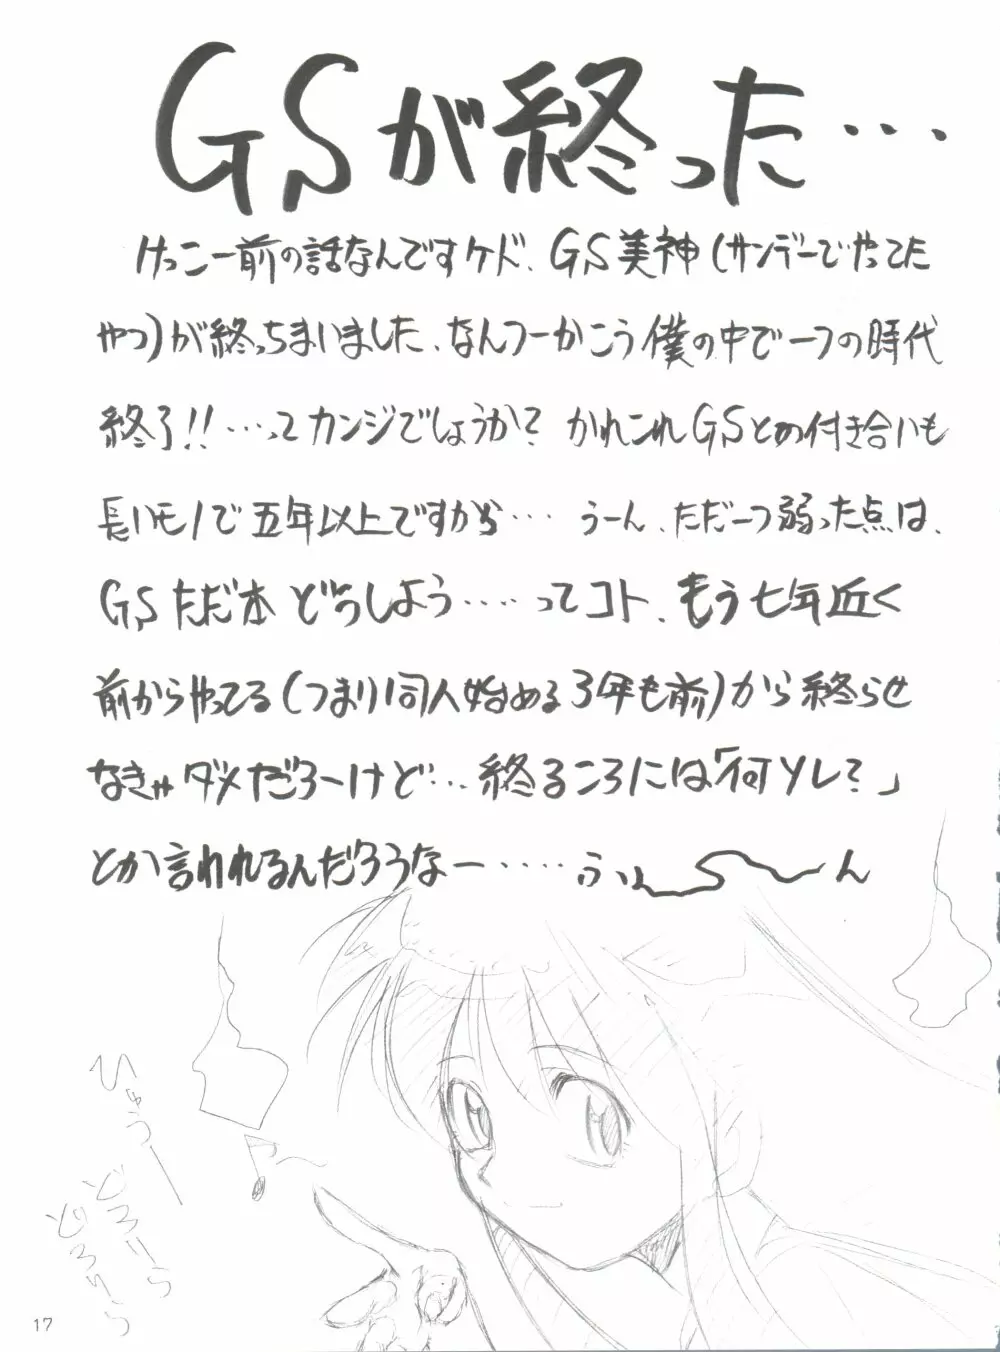 GSが終った…
けっこー前の話なんですケド、GS美神(サンデーでやってた
やつ)が終っちまいました、なんつーかこう僕の中で一つの時代
終了!!…ってカンジでしょうか? かれこれGSとの付き合いも
長いモノで五年以上ですから… うーん、ただ一つ弱った点は、
GSただ本 どうしよう‥‥ってコト、もう七年近く
前からやってる(つまり同人始める3年も前)から終らせ
なきゃダメだろーけど…終るころには「何ソレ?」
とか言われるんだろうなー‥‥‥ふぅ〜〜ん
ひゅうー
どろりろ
どろりろ
17